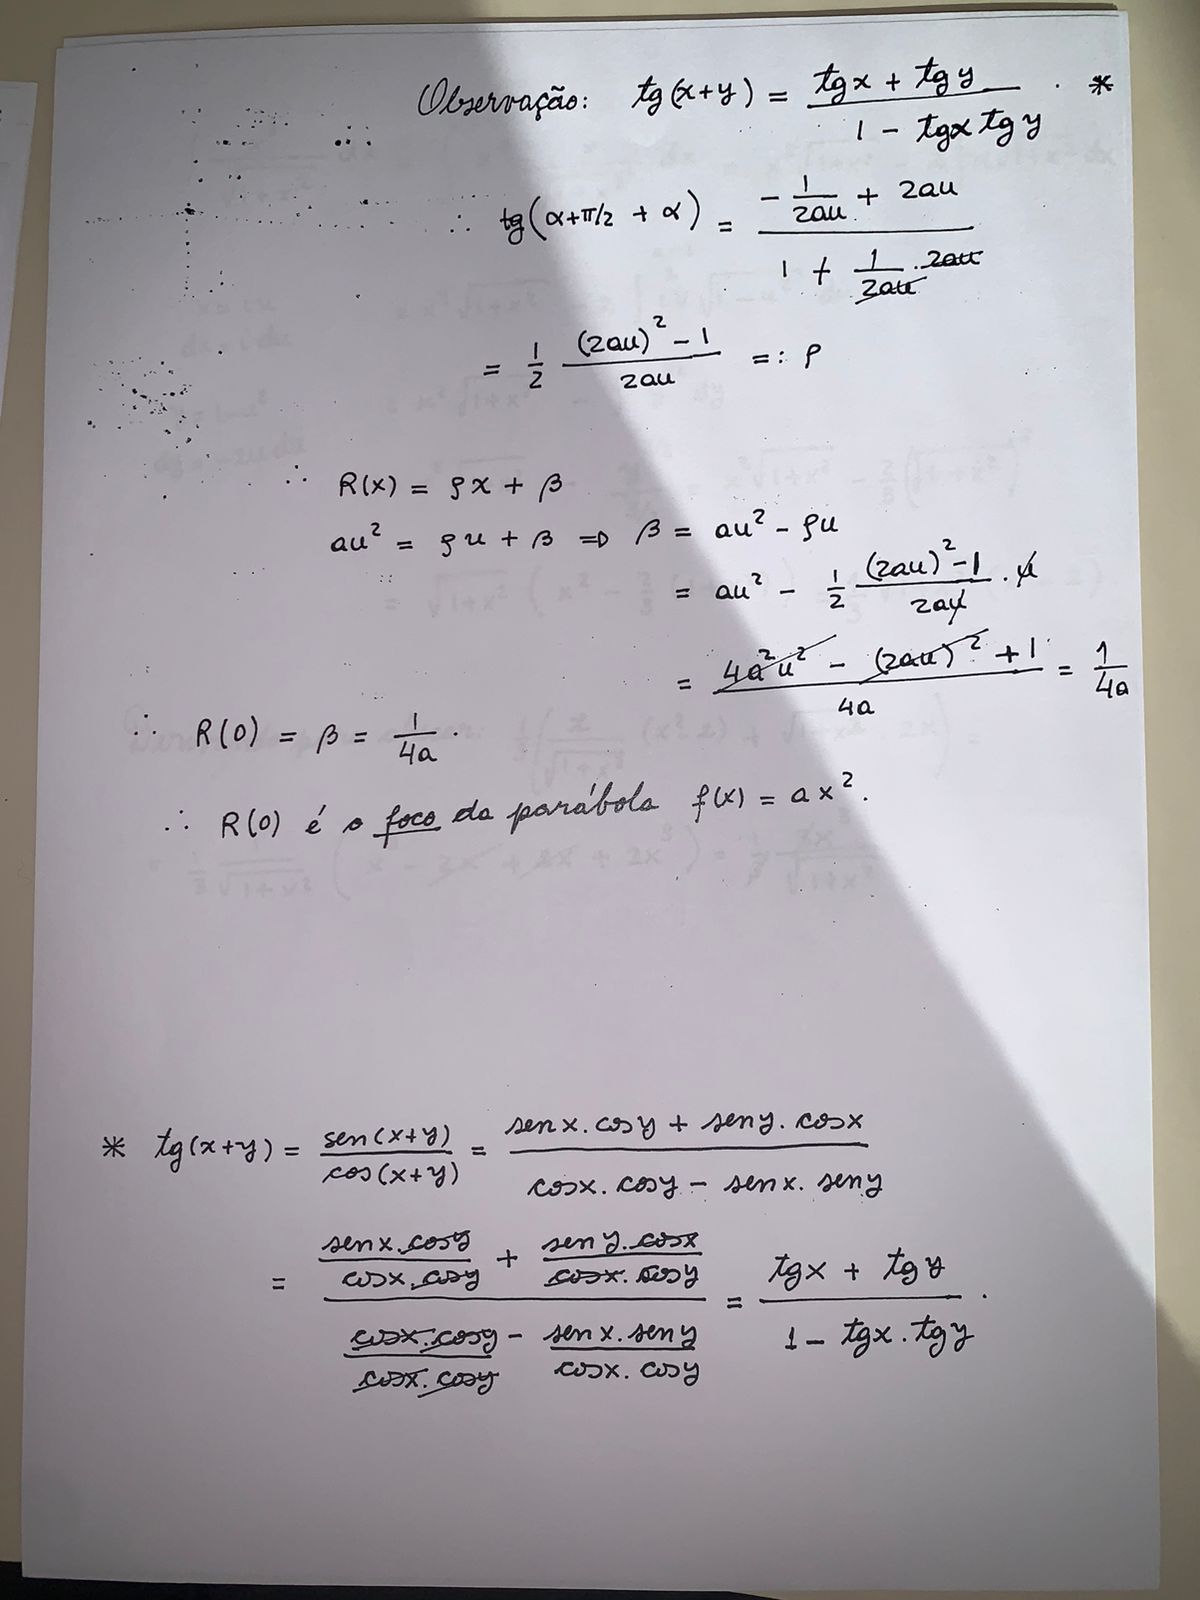 Observação: tg(x+y) = (tgx + tgy)/(1 - tgx tgy) . *
∴ tg(α+π/2 + α) = (-1/(2au) + 2au)/(1 + 1/(2au) . 2au)
= 1/2 ((2au)² - 1)/(2au) =: ρ
∴ R(x) = ρx + β
au² = ρu + β ⇒ β = au² - ρu
= au² - 1/2 ((2au)² - 1)/(2au) . u
= (4a²u² - (2au)² + 1)/(4a) = 1/(4a)
∴ R(0) = β = 1/(4a).
∴ R(0) é o foco da parábola f(x) = ax².
* tg(x+y) = sen(x+y)/cos(x+y) = (senx.cosy + seny.cosx)/(cosx.cosy - senx.seny)
= ((senx.cosy)/(cosx.cosy) + (seny.cosx)/(cosx.cosy))/((cosx.cosy)/(cosx.cosy) - (senx.seny)/(cosx.cosy)) = (tgx + tgy)/(1 - tgx.tgy) .